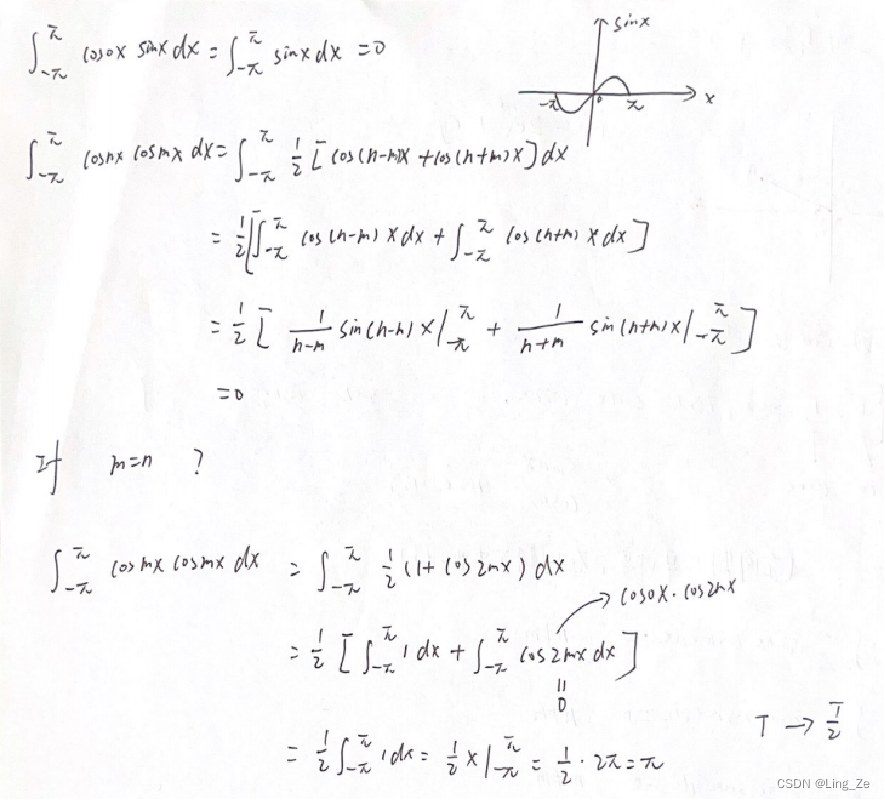 ∫_{-π}^{π} cos0x sinx dx = ∫_{-π}^{π} sinx dx = 0
sinx
-π 0 π x
∫_{-π}^{π} cosnx cosmx dx = ∫_{-π}^{π} 1/2 [cos(n-m)x + cos(n+m)x] dx
= 1/2 [∫_{-π}^{π} cos(n-m)x dx + ∫_{-π}^{π} cos(n+m)x dx]
= 1/2 [1/(n-m) sin(n-m)x |_{-π}^{π} + 1/(n+m) sin(n+m)x |_{-π}^{π}]
= 0
If m=n ?
∫_{-π}^{π} cosmx cosmx dx = ∫_{-π}^{π} 1/2 (1+cos2mx) dx
→ cos0x · cos2mx
= 1/2 [∫_{-π}^{π} 1 dx + ∫_{-π}^{π} cos2mx dx]
=
0
T → T/2
= 1/2 ∫_{-π}^{π} 1 dx = 1/2 x |_{-π}^{π} = 1/2 · 2π = π
CSDN @Ling_Ze